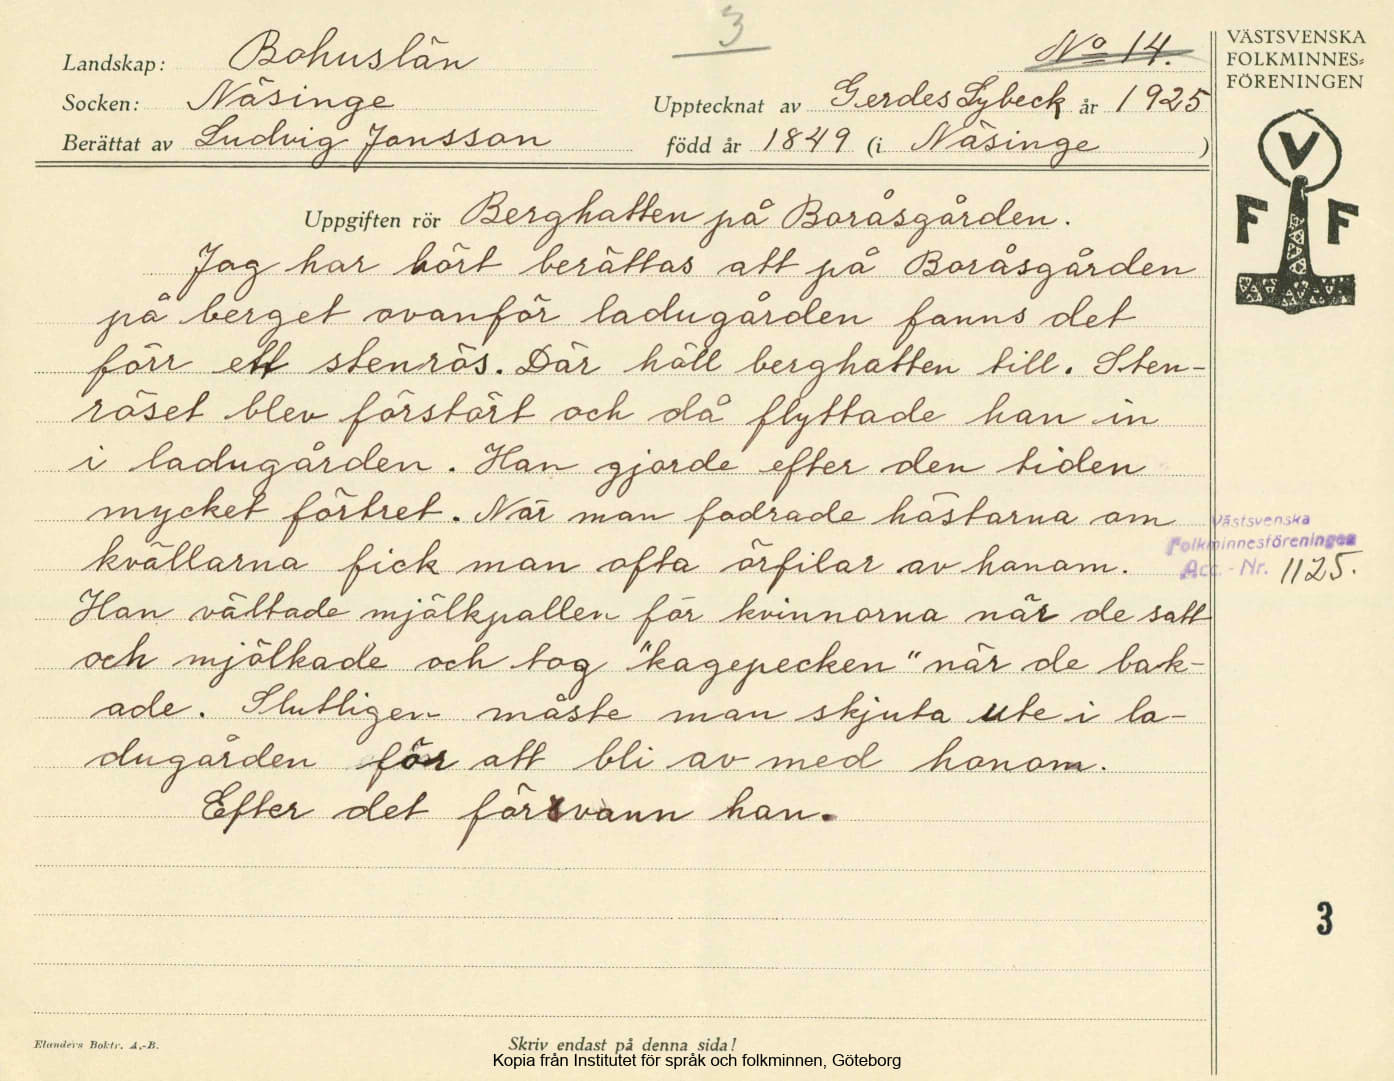 3
No 14.
VÄSTSVENSKA
FOLKMINNES=
FÖRENINGEN
Landskap: Bohuslän
Socken: Näsinge
Upptecknat av Gerdes Lybeck år 1925
Berättat av Ludvig Jonsson
född år 1849 (i Näsinge )
V
F F
Uppgiften rör Berghatten på Boråsgården.
Jag har hört berättas att på Boråsgården
på berget ovanför ladugården fanns det
förr ett stenrös. Där höll berghatten till. Sten-
röset blev förstört och då flyttade han in
i ladugården. Han gjorde efter den tiden
mycket förtret. När man fodrade hästarna om
kvällarna fick man ofta örfilar av honom.
Han vältade mjölkpallen för kvinnorna när de satt
och mjölkade och tog "kagepecken" när de bak-
ade. Slutligen måste man skjuta ute i la-
dugården för att bli av med honom.
Efter det försvann han.
Västsvenska
Folkminnesföreningen
Acc.-Nr. 1125.
3
Elanders Boktr. A.-B.
Skriv endast på denna sida!
Kopia från Institutet för språk och folkminnen, Göteborg